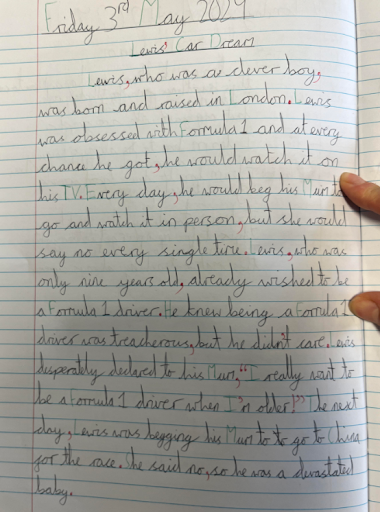 Friday 3rd May 2024
Lewis' Car Dream
Lewis, who was a clever boy,
was born and raised in London. Lewis
was obsessed with Formula 1 and at every
chance he got, he would watch it on
his TV. Every day, he would beg his Mum to
go and watch it in person, but she would
say no every single time. Lewis, who was
only nine years old, already wished to be
a Formula 1 driver. He knew being a Formula 1
driver was treacherous, but he didn't care. Lewis
desperately declared to his Mum, "I really want to
be a Formula 1 driver when I'm older!" The next
day, Lewis was begging his Mum to to go to China
for the race. She said no, so he was a devastated
baby.